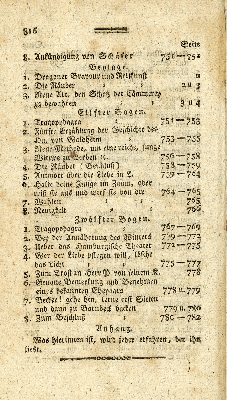 816
Seite
8. Ankündigung von Schäfer 751—752
Beylage.
1. Dragoner Bravour und Reitkunst 1
2. Die Räuber 2 u 3
3. Neue Art, den Schatz der Cämmerey
zu bewahren 3 u 4
Eilfter Bogen.
1. Tragopodagra 751—753
2. Fünfte Erzählung der Geschichte des
Hn. von Waldheim 753—755
3. Neue Methode, um eine reiche, junge
Wittwe zu werben 756—758
4. Die Räuber (Beschluß) 758—759
5. Antwort über die Liebe in L. 759—764
6. Halte deine Zunge im Zaum, aber
wirf sie aus und wirf sie von dir 764—765
7. Wahlen 765
8. Neuigkeit 766
Zwölfter Bogen.
1. Tragopodagra 767—769
2. Bey der Annäherung des Winters 769—773
3. Ueber das Hamburgische Theater 773—775
4. Wer der Liebe pflegen will, lösche
das Licht 775—777
5. Zum Trost an Herr P. von seinem K. 778
6. Genaue Bemerkung und Benehmen
eines bekannten Ehepaars 778 u. 779
7. Becker! gehe hin, lerne erst Sitten
und dann zu Barnbeck backen 779 u. 780
8. Zum Beschluß 780—782
Anhang.
Was hierinnen ist, wird jeder erfahren, der ihn
liest.